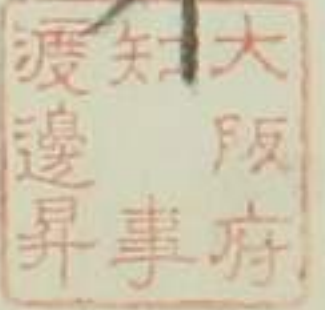 大阪府
知事
渡邊昇